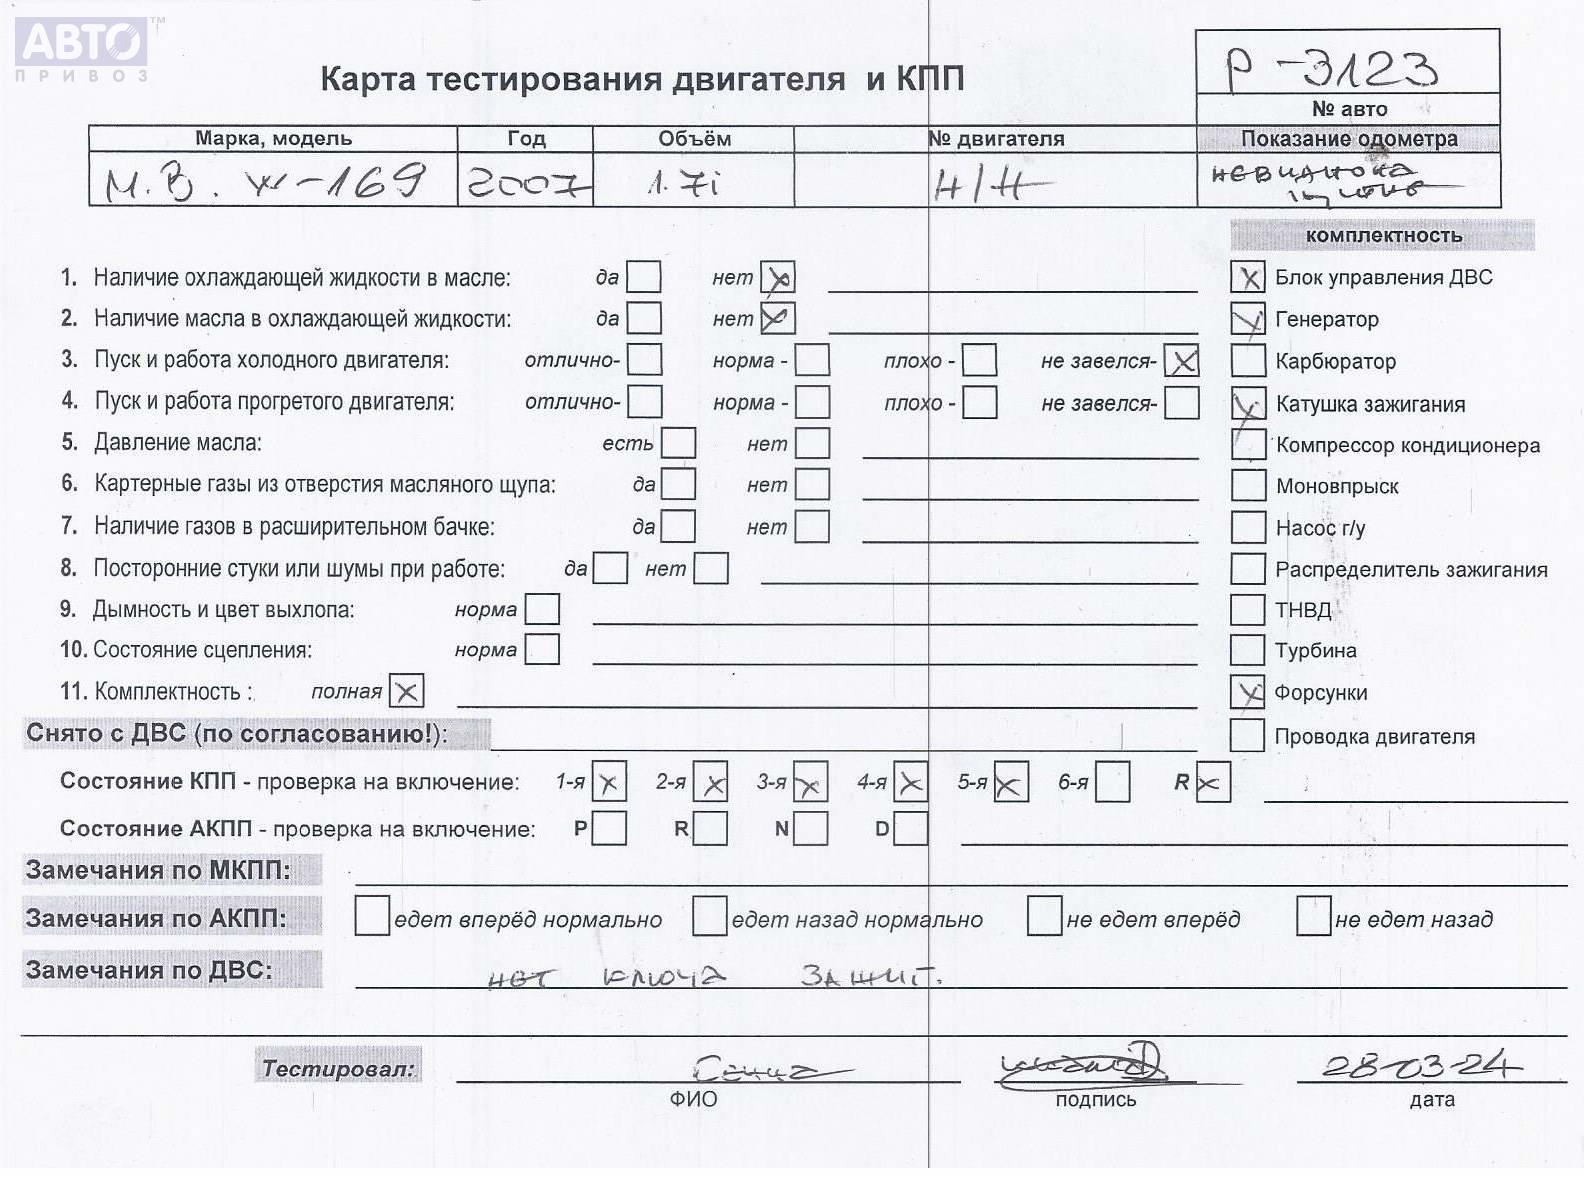 АВТО™
ПРИВОЗ
Карта тестирования двигателя и КПП
Р-3123
№ авто
Марка, модель Год Объём № двигателя Показание одометра
М.В. W-169 2007 1.7i Н/Н
комплектность
1. Наличие охлаждающей жидкости в масле: да нет Блок управления ДВС
2. Наличие масла в охлаждающей жидкости: да нет Генератор
3. Пуск и работа холодного двигателя: отлично- норма - плохо - не завелся- Карбюратор
4. Пуск и работа прогретого двигателя: отлично- норма - плохо - не завелся- Катушка зажигания
5. Давление масла: есть нет Компрессор кондиционера
6. Картерные газы из отверстия масляного щупа: да нет Моновпрыск
7. Наличие газов в расширительном бачке: да нет Насос г/у
8. Посторонние стуки или шумы при работе: да нет Распределитель зажигания
9. Дымность и цвет выхлопа: норма ТНВД
10. Состояние сцепления: норма Турбина
11. Комплектность : полная Форсунки
Снято с ДВС (по согласованию!): Проводка двигателя
Состояние КПП - проверка на включение: 1-я 2-я 3-я 4-я 5-я 6-я R
Состояние АКПП - проверка на включение: P R N D
Замечания по МКПП:
Замечания по АКПП: едет вперёд нормально едет назад нормально не едет вперёд не едет назад
Замечания по ДВС: нет ключа зажиг.
Тестировал: 28-03-24
ФИО подпись дата